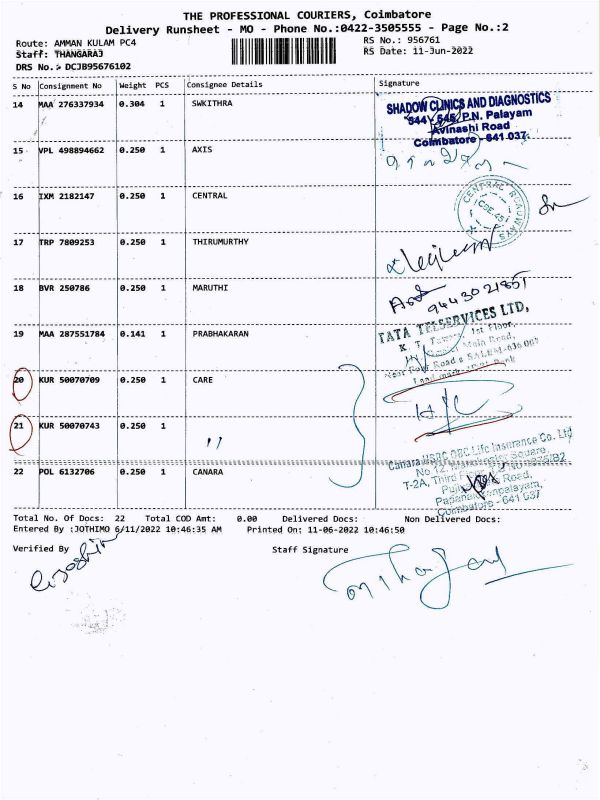 THE PROFESSIONAL COURIERS, Coimbatore
Delivery Runsheet - MO - Phone No.:0422-3505555 - Page No.:2
Route: AMMAN KULAM PC4 RS No.: 956761
Staff: THANGARAJ RS Date: 11-Jun-2022
DRS No.: DCJB95676102
S No Consignment No Weight PCS Consignee Details Signature
14 MAA 276337934 0.304 1 SWKITHRA
SHADOW CLINICS AND DIAGNOSTICS
P.N. Palayam
Avinashi Road
Coimbatore - 641 037
15 VPL 498894662 0.250 1 AXIS
16 IXM 2182147 0.250 1 CENTRAL
CENTRAL ROADWAYS
17 TRP 7809253 0.250 1 THIRUMURTHY
18 BVR 250786 0.250 1 MARUTHI
9443021851
19 MAA 287551784 0.141 1 PRABHAKARAN
TATA TELSERVICES LTD,
1st Floor,
Main Road,
20 KUR 50070709 0.250 1 CARE
21 KUR 50070743 0.250 1 〃
22 POL 6132706 0.250 1 CANARA
Canara HSBC OBC Life Insurance Co. Ltd
No 12,
T-2A, Third
Road,
Coimbatore - 641 037
Total No. Of Docs: 22 Total COD Amt: 0.00 Delivered Docs: Non Delivered Docs:
Entered By :JOTHIMO 6/11/2022 10:46:35 AM Printed On: 11-06-2022 10:46:50
Verified By Staff Signature